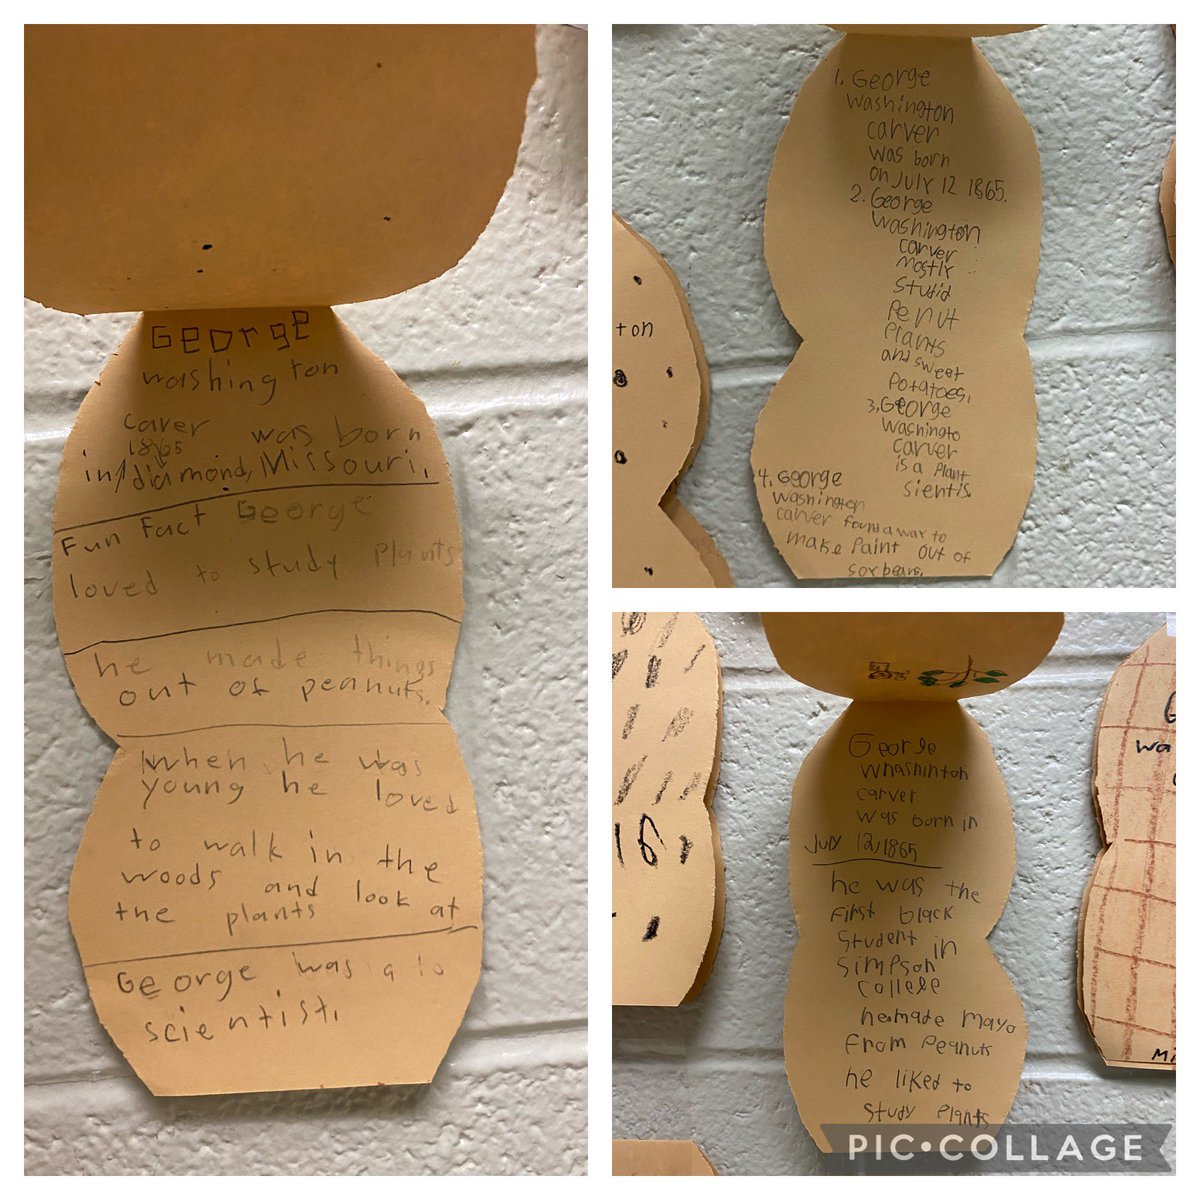 George
washington
Carver was born
1865
in/diamond, Missouri.
Fun Fact George
loved to study Plants
he made things
out of peanuts.
When he was
young he loved
to walk in the
woods and look at
the plants
George was a
scientist.
1. George
Washington
carver
was born
on July 12 1865.
2. George
Washington
carver
mostly
studid
Penut
Plants
and sweet
Potatoes.
3. George
Washingto
carver
is a Plant
sientis.
4. George
Washington
carver found a way to
make Paint out of
soybeans.
ton
16
George
Whashinton
carver
was born in
July 12,1865
he was the
First black
Student in
Simpson
College
he made mayo
From Peanuts
he liked to
Study Plants
G
wa
Mi
PIC•COLLAGE